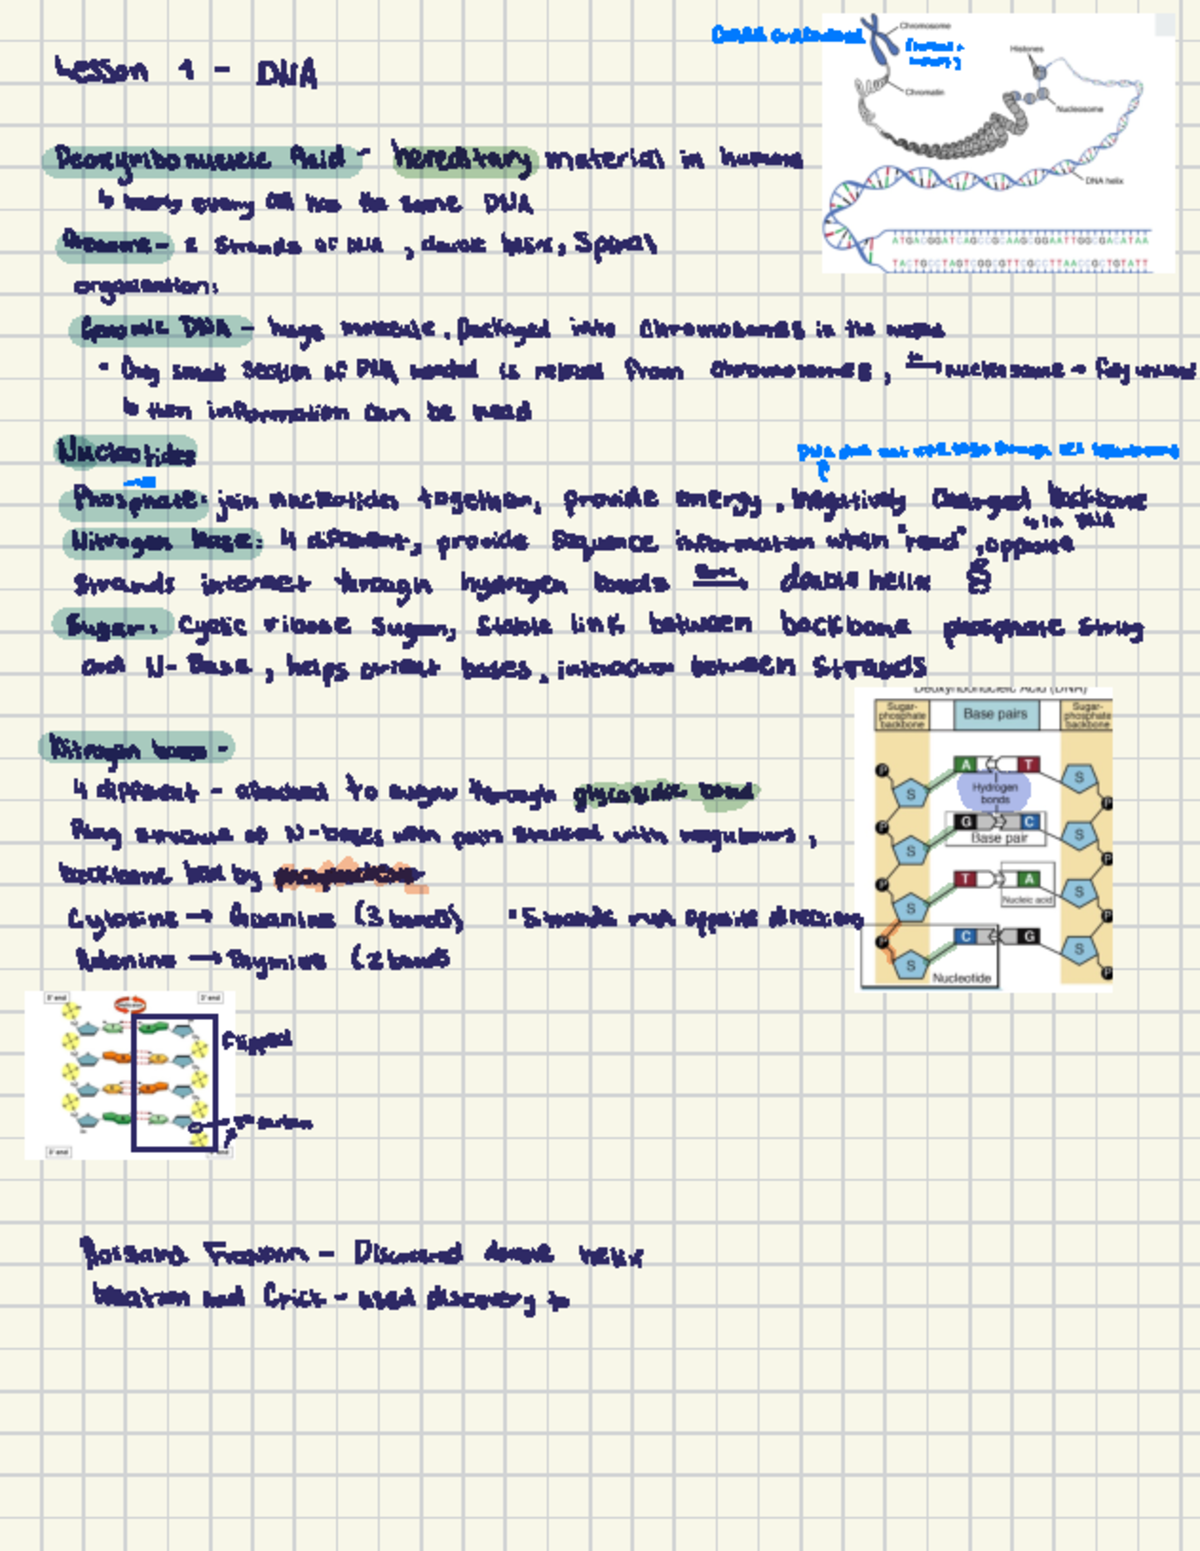 Lesson 1 - DNA
Chromosome
Histones
Chromatin
Nucleosome
DNA helix
ATGACGGATCAGCCGCAAGCGGAATTGGCGACATAA
TACTGCCTAGTCGGCGTTCGCCTTAACCGCTGTATT
Deoxyribonucleic Acid - hereditary material in humans
↳ nearly every cell has the same DNA
2 strands of DNA, double helix, spiral
organization:
Genomic DNA - huge molecule, packaged into chromosomes in the
• Only small section of DNA needed is released from chromosomes, → nucleosome → fully unwind
↳ then information can be read
Nucleotides
DNA does not through cell
Phosphate: join nucleotides together, provide energy, negatively charged backbone
↳ in DNA
Nitrogen base: 4 different, provide sequence information when "read", opposite
strands interact through hydrogen bonds form→ double helix
Sugar: Cyclic ribose sugar, stable link between backbone phosphate string
and N-Base, helps orient bases, interaction between strands
Nitrogen bases -
4 different - attached to sugar through glycosidic bond
Ring structure of N-bases with pairs stacked with neighbours,
backbone held by
Cytosine → Guanine (3 bonds) • Strands run opposite directions
Adenine → Thymine (2 bonds
Deoxyribonucleic Acid (DNA)
Sugar-phosphate backbone
Base pairs
Sugar-phosphate backbone
A T
Hydrogen bonds
G C
Base pair
T A
Nucleic acid
C G
Nucleotide
P S
5' end
3' end
flipped
5' carbon
3' end
Rosalind Franklin - Discovered double helix
Watson and Crick - used discovery to